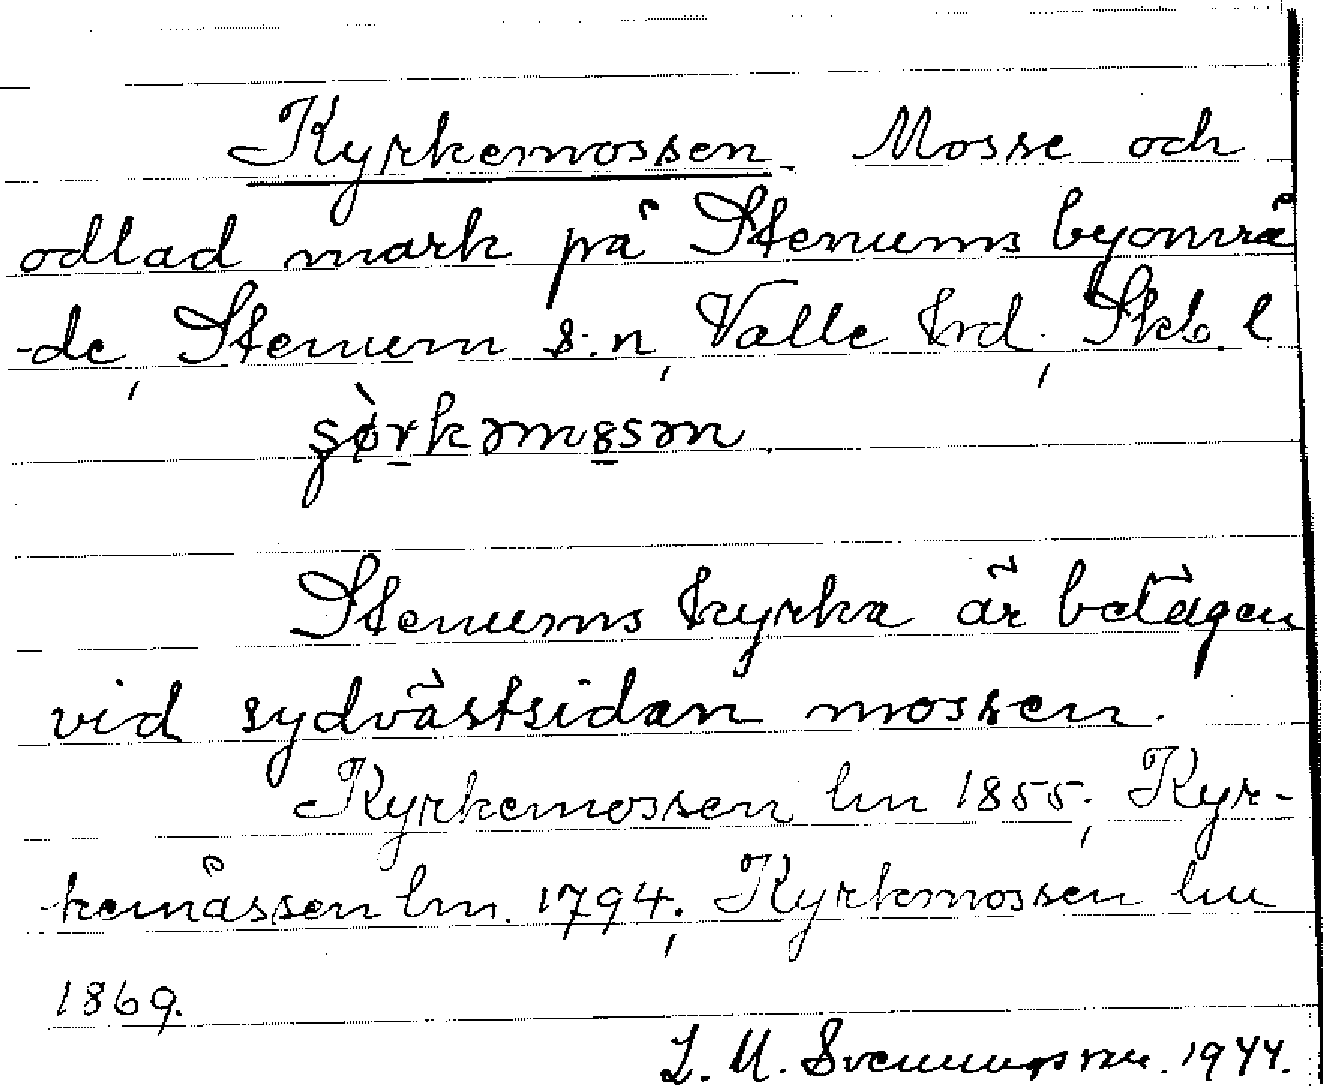 Kyrkemossen. Mosse och
odlad mark på Stenums byområ
-de, Stenum s:n, Valle hrd; Skb. l
Stenums kyrka är belägen
vid sydvästsidan mossen.
Kyrkemossen lm 1855; Kyr-
kemåssen lm. 1794; Kyrkmossen lm
1869.
L. M. Svenungsson. 1944.